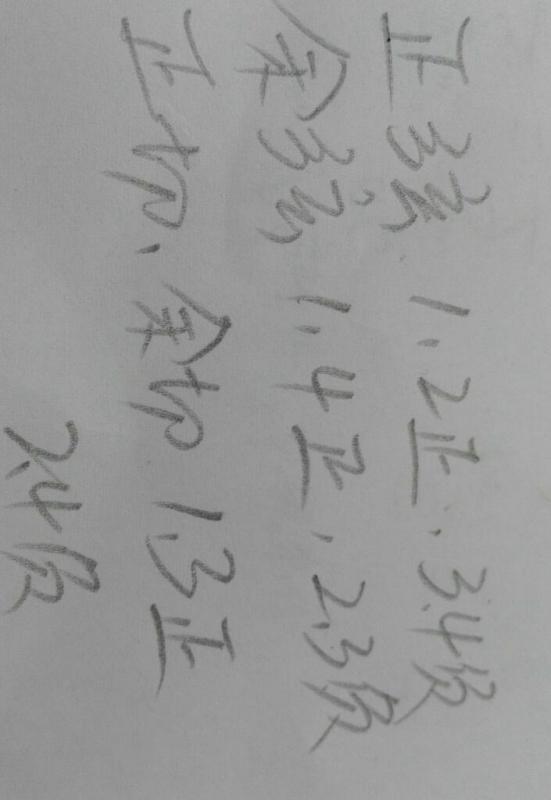 正弦. 1.2正. 3.4负
余弦 1.4正. 2.3负
正切、余切 1.3正
2.4负